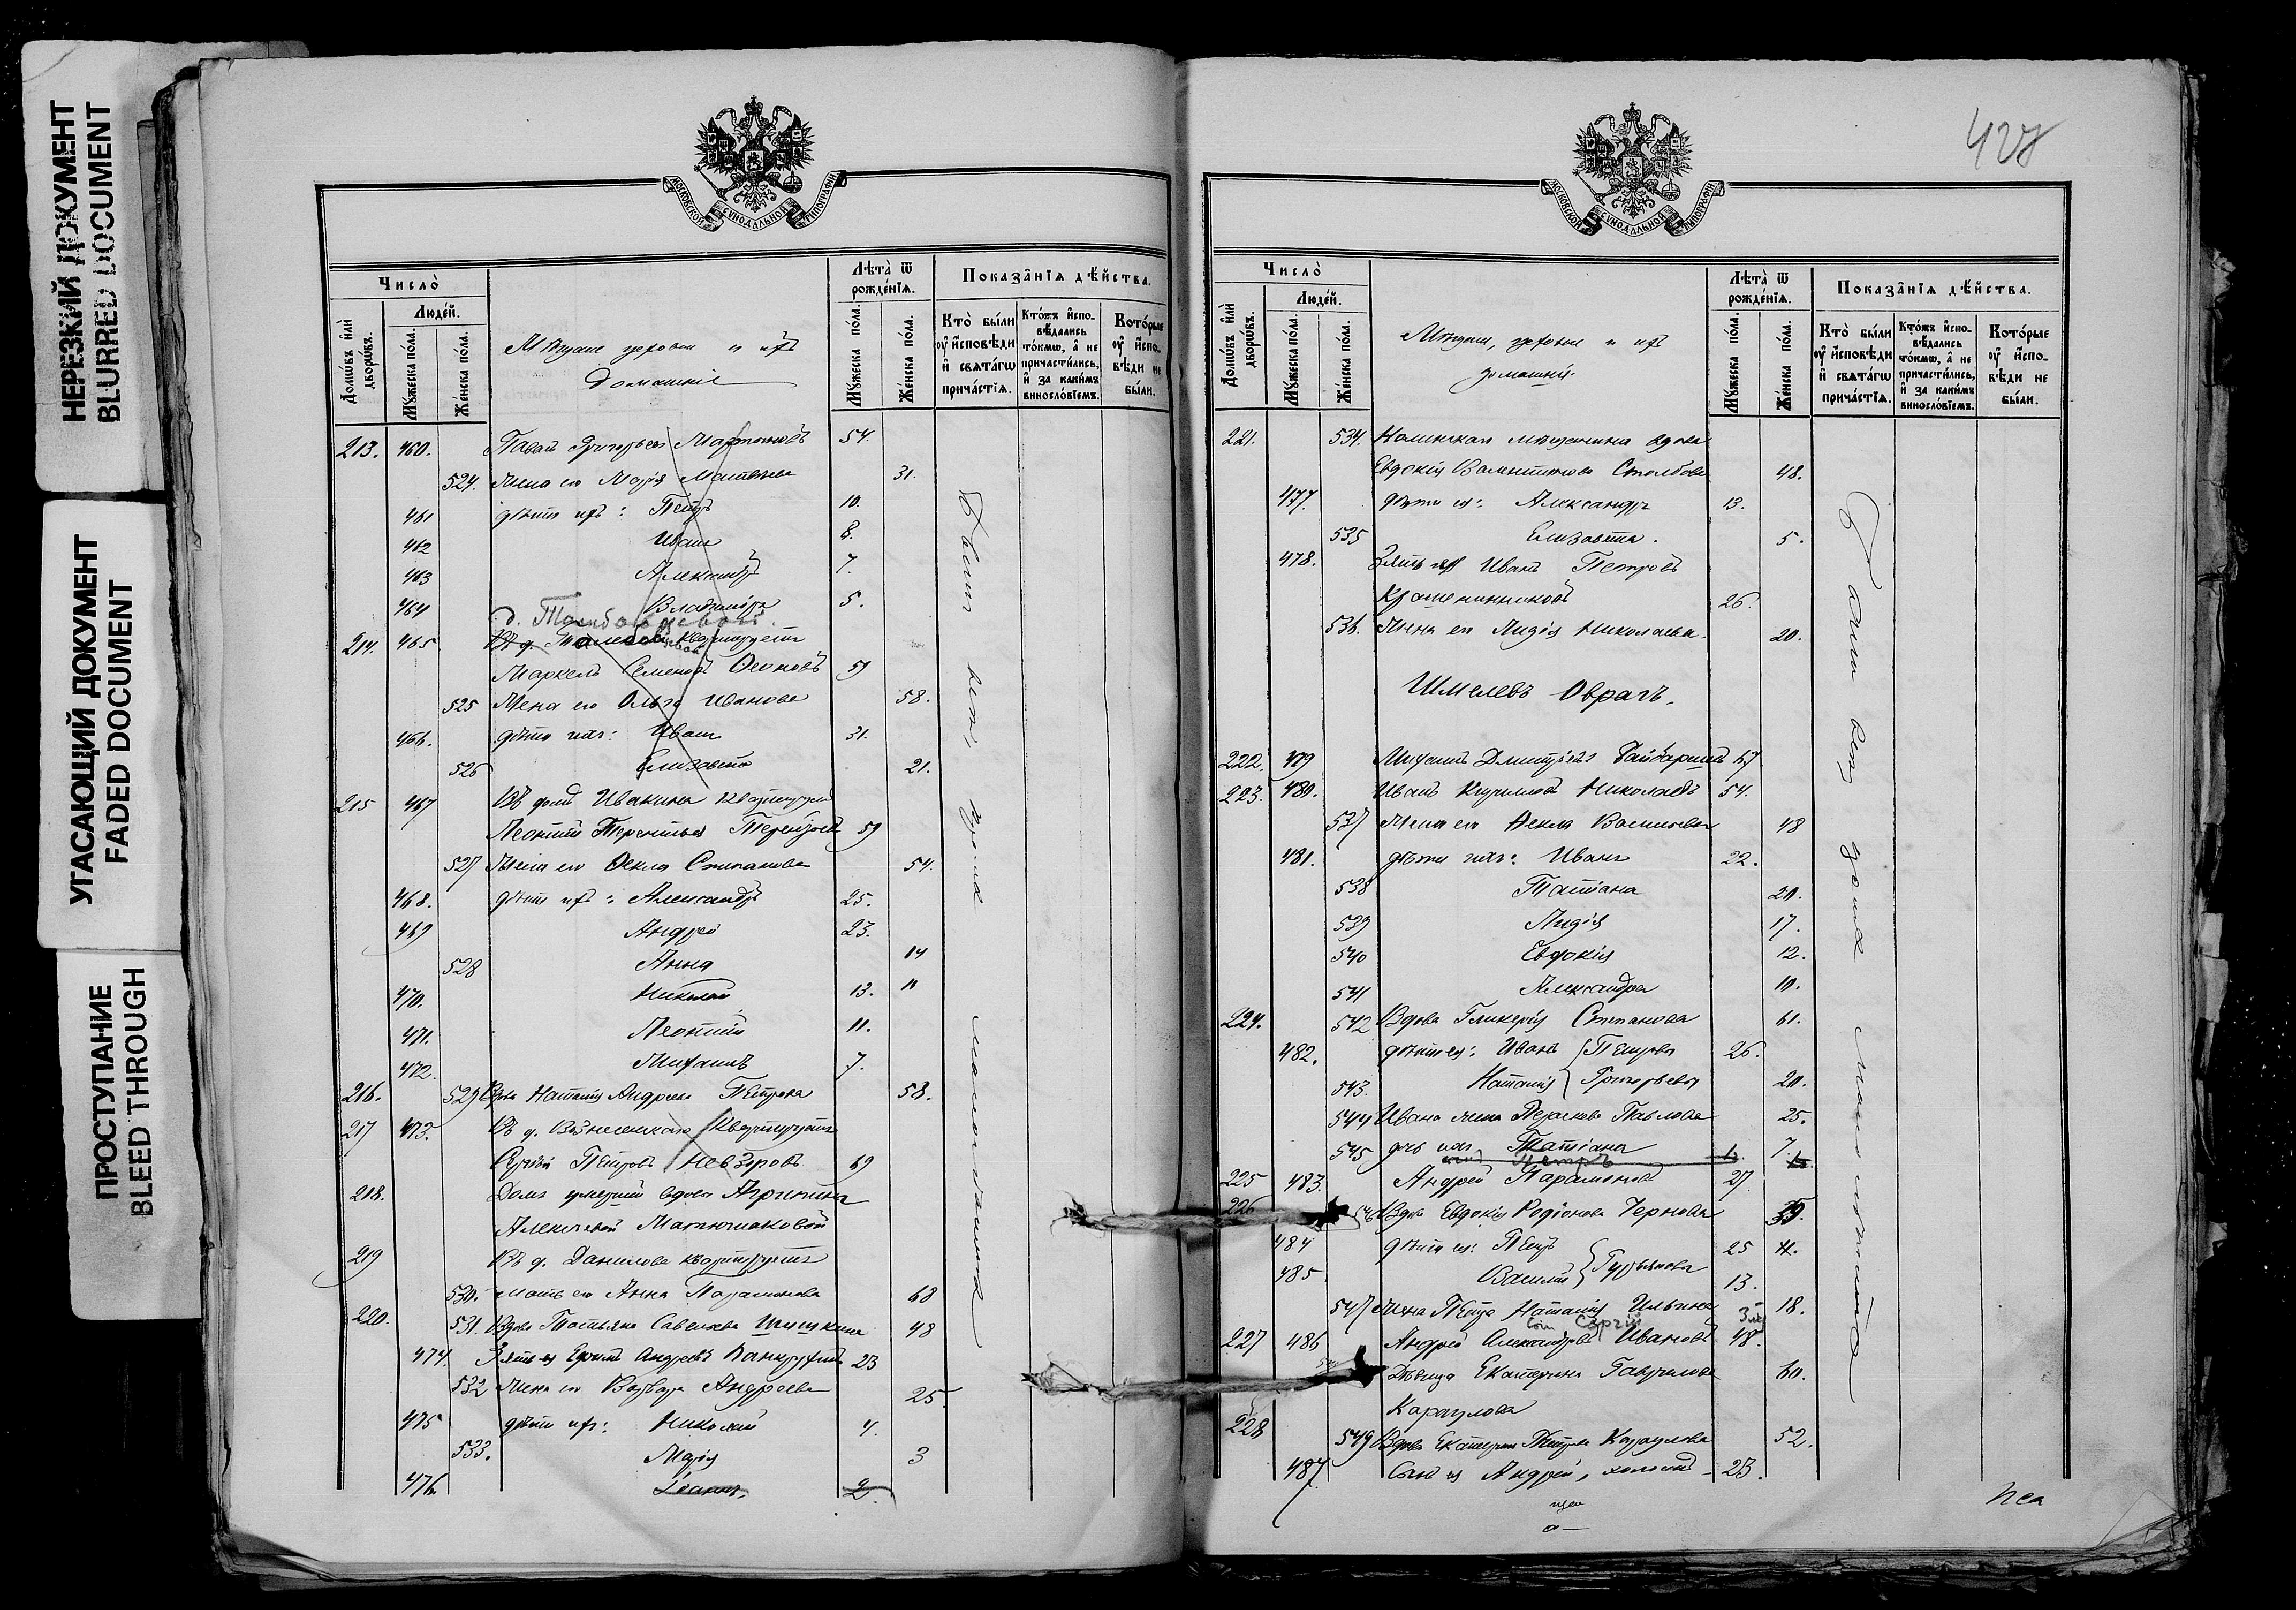 НЕРЕЗКИЙ ДОКУМЕНТ
BLURRED DOCUMENT
УГАСАЮЩИЙ ДОКУМЕНТ
FADED DOCUMENT
ПРОСТУПАНИЕ
BLEED THROUGH
МОСКОВСКОЙ СУНОДАЛЬНОЙ ТИПОГРАФІИ
Число̀
Домѡ́въ и҆лѝ дворѡ́въ.
Люде́й.
Мꙋ́жеска по́ла.
Же́нска по́ла.
Мѣщане, церкви и ихъ
домашніе
Лѣта̀ ѿ рожде́нїѧ.
Мꙋ́жеска по́ла.
Же́нска по́ла.
Показа̑нїѧ дѣ́йства.
Кто̀ бы́ли ᲂу҆ и҆сповѣ́ди и҆ свѧта́гѡ прича́стїѧ.
Кто́жъ и҆сповѣ́дались то́кмѡ, а҆ не причасти́лись, и҆ за каки́мъ виносло́вїемъ.
Кото́рые ᲂу҆ и҆сповѣ́ди не бы́ли.
213. 460. Павелъ Григорьевъ 54.
524. Жена его Марія Матвѣева 31.
461 дѣти ихъ: Петръ 10.
462 Иванъ 8.
463 Александръ 7.
464 Владиміръ 5.
214. 465. Въ д. квартируетъ
Маркелъ Семеновъ 59
525 Жена его Ольга Иванова 58.
466. дѣти ихъ: Иванъ 31.
526 Елизавета 21.
215 467 Въ домѣ Ивакина квартируетъ
Леонтій Терентьевъ 59
527 Жена его Ѳекла Степанова 54.
468. дѣти ихъ: Александръ 25.
469 Андрей 23.
528 Анна 14
470. Николай 13. 11
471. Леонтій 11.
472. Михаилъ 7.
216. 529 Вдова Наталія Андреева Петрова 58.
217 473. Въ д. Вознесенскаго квартируетъ
Сергѣй Петровъ Невзоровъ 69
218. Домъ умершей вдовы Агрипины
Алексѣевой
219 Въ д. Данилова квартируетъ
530. мать его Анна Парамонова 68
220. 531. Вдова Татьяна Савельева Шишкина 48
474. Зять ея Ефимъ Андреевъ 23
532 Жена его Варвара Андреева 25.
475 дѣти ихъ: Николай 4.
533. Марія 3
476 Іоаннъ 2.
дома
428
МОСКОВСКОЙ СУНОДАЛЬНОЙ ТИПОГРАФІИ
Число̀
Домѡ́въ и҆лѝ дворѡ́въ.
Люде́й.
Мꙋ́жеска по́ла.
Же́нска по́ла.
Мѣщане, церкви и ихъ
домашніе.
Лѣта̀ ѿ рожде́нїѧ.
Мꙋ́жеска по́ла.
Же́нска по́ла.
Показа̑нїѧ дѣ́йства.
Кто̀ бы́ли ᲂу҆ и҆сповѣ́ди и҆ свѧта́гѡ прича́стїѧ.
Кто́жъ и҆сповѣ́дались то́кмѡ, а҆ не причасти́лись, и҆ за каки́мъ виносло́вїемъ.
Кото́рые ᲂу҆ и҆сповѣ́ди не бы́ли.
221. 534. мѣщанина вдова
Евдокія Валентинова Столбова 48.
477. дѣти ея: Александръ 13.
535 Елизавета. 5.
478. Зять ея Иванъ Петровъ
Крашенинниковъ 26.
536. Жена его Лидія Николаева. 20.
Шмелевъ Оврагъ.
222. 479 Михаилъ Дмитріевъ 67
223. 480. Иванъ Кирилловъ Николаевъ 54.
537 Жена его Ѳекла Васильева 48
481. дѣти ихъ: Иванъ 22.
538 Татіана 20.
539 Лидія 17.
540 Евдокія 12.
541 Александра 10.
224. 542 Вдова Гликерія Степанова 61.
482. дѣти ея: Иванъ Петровъ 26.
543. Наталія Григорьева 20.
544 Ивана жена Пелагея Павлова 25.
545 дочь ихъ Татіана 7.
Петръ
225 483. Андрей Парамоновъ 27
226 Вдова Евдокія Родіонова Чернова
484 дѣти ея: Петръ 25
485 Василій Гурьяновы 13.
547 Жена Петра Наталія Ильина 18.
сын Сергій
227 486 Андрей Александровъ Ивановъ 48.
Дѣвица Екатерина Гаврилова 60.
Караулова
228
549 Вдова Екатерина Петрова Караулова 52.
487. Сынъ ея Андрей, холостъ 23.
дома